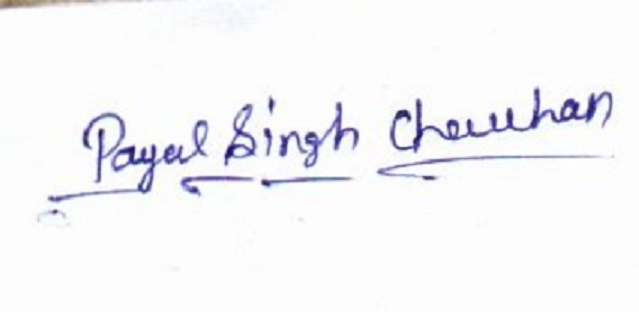 Payal Singh Chauhan